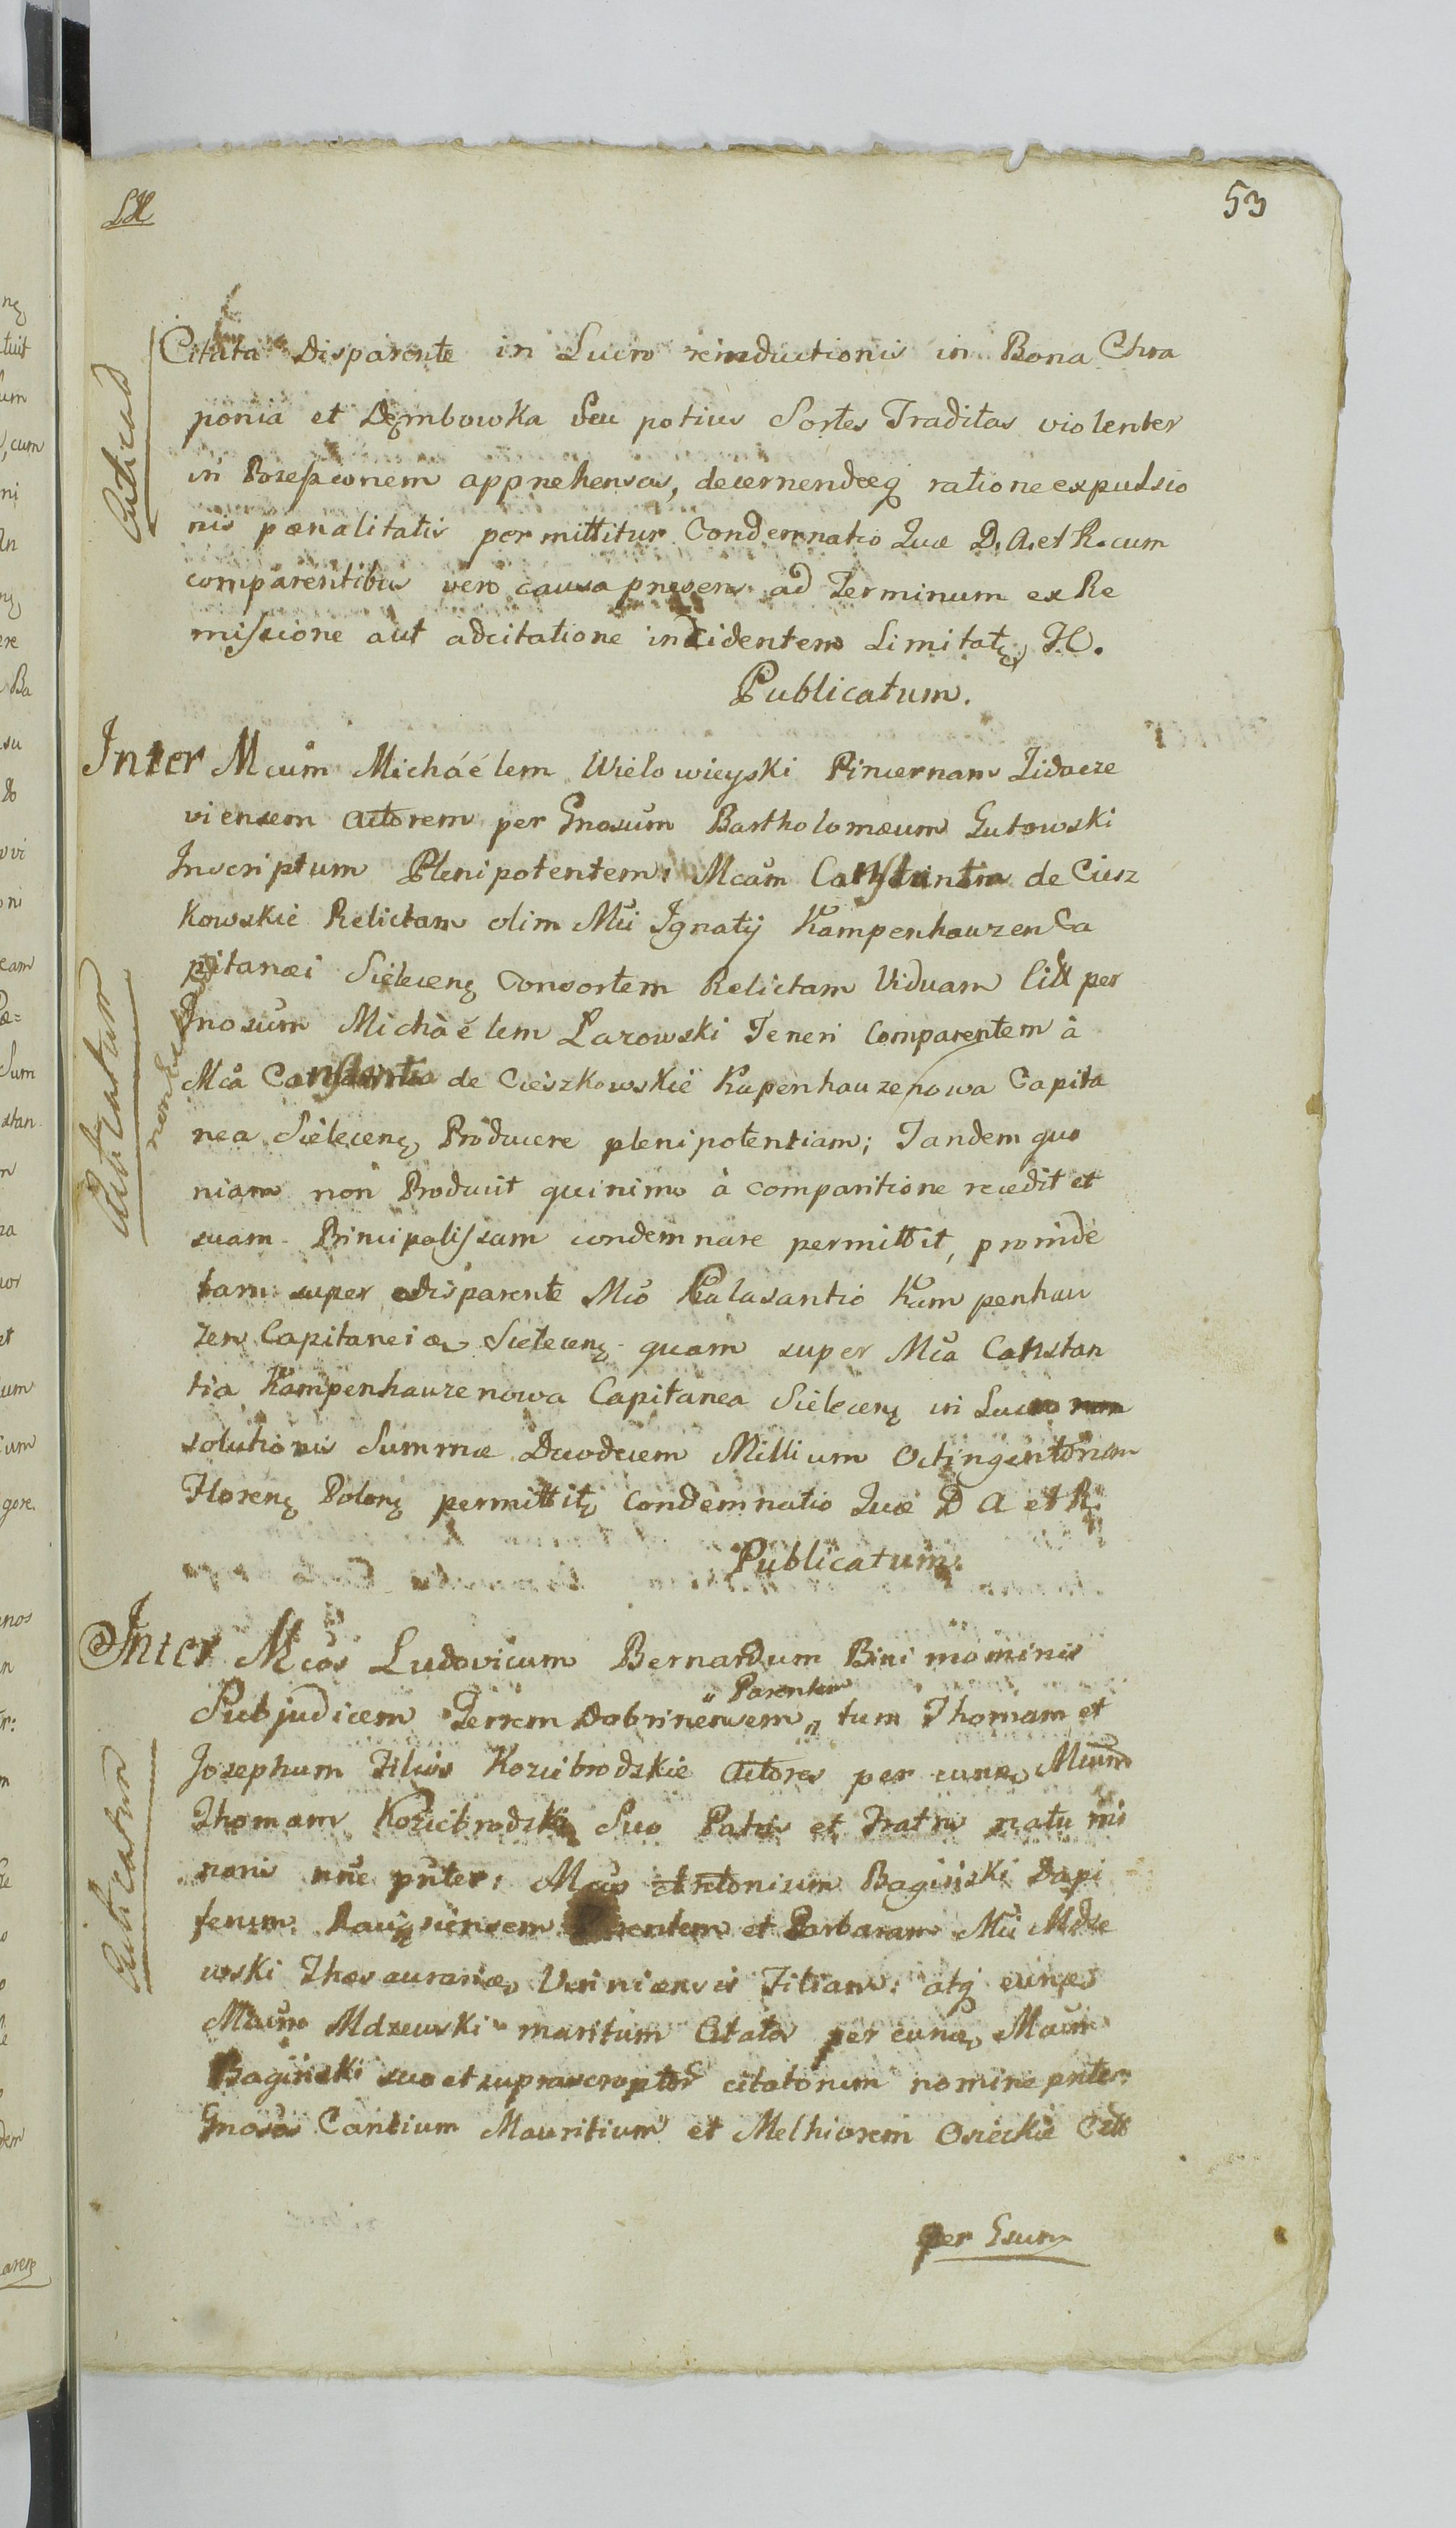 53
Citata Disparente in Lucro reinductionis in Bona Chra
ponia et Dęmbowka seu potius Sortes Traditas violenter
in Possessionem apprehensas, decernendæq ratione expulsio
nis pœnalitatis permittitur Condemnatio Quæ D. A. et R. cum
comparentibus vero causa præsens ad Terminum ex Re
missione aut adcitatione incidentem Limitatę H.
Publicatum.
Inter Mcum Micháélem Wielowieyski Pincernam Zidacze
viensem Actorem per Gnosum Bartholomæum Gutowski
Inscriptum Plenipotentem: Mcam Constantia de Ciesz
kowskie Relictam olim Mci Ignatij Kampenhauzen Ca
pitanei Sieleceng Consortem Relictam Viduam Citt per
Gnosum Michàélem Lazowski Teneri Comparentem à
Mca Constantia de Cieszkowskie Kapenhauzenowa Capita
nea Sieleceng Producere plenipotentiam; Tandem quo
niam non Producit quinimo à comparitione recedit et
suam Principalissam condemnare permittit, proinde
tam super disparente Mco Kalasantio Kampenhau
zen Capitaneiæ Sieleceng quam super Mca Constan
tia Kampenhauzenowa Capitanea Sieleceng in Lucro non
solutionis Summæ Duodecem Millium Octingentorum
Floreng Polong permittitę Condemnatio Quæ D A et R.
Publicatum.
Inter Mcos Ludovicum Bernardum Bini mominis
Subjudicem Terrem Dobrinensem „ Parentem „ tum Thomam et
Josephum Filios Kozicbrodzkie Actores per eunæ Mcum
Thomam Kozicbrodzki Suo Patris et Fratris natu mi
noris nne pnter: Mcos Antonium Bagiński Dapi
ferum et Barbaram Mci Mdze
wski Thesaurariæ Filiam: atq eunæ
Mcum Mdzewski maritum Citatos per eunæ Mcum
Bagiński suo et suprascriptor citatorum nomine pnter:
Gnosos Cantium Mauritium et Melhiorem Osieckie Citt
per Gsum